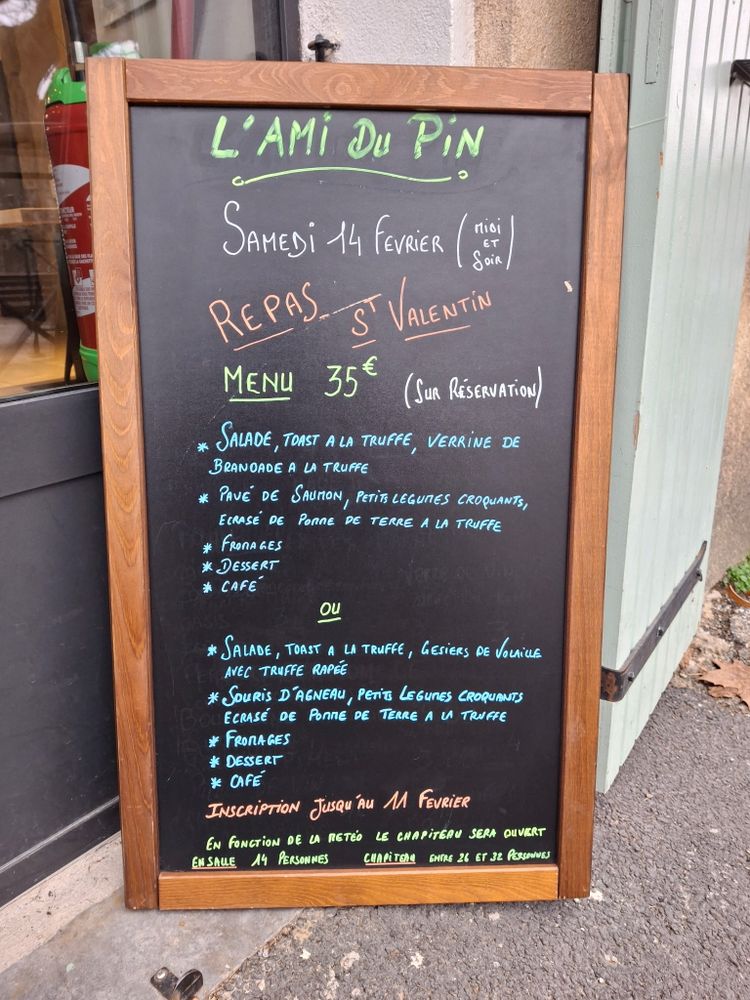 L'AMI DU PIN
SAMEDI 14 FEVRIER (MIDI ET SOIR)
REPAS ST VALENTIN
MENU 35€ (SUR RÉSERVATION)
* SALADE, TOAST A LA TRUFFE, VERRINE DE
BRANDADE A LA TRUFFE
* PAVÉ DE SAUMON, PETITS LEGUMES CROQUANTS,
ECRASÉ DE POMME DE TERRE A LA TRUFFE
* FROMAGES
* DESSERT
* CAFÉ
OU
* SALADE, TOAST A LA TRUFFE, GESIERS DE VOLAILLE
AVEC TRUFFE RAPÉE
* SOURIS D'AGNEAU, PETITS LEGUMES CROQUANTS
ECRASÉ DE POMME DE TERRE A LA TRUFFE
* FROMAGES
* DESSERT
* CAFÉ
INSCRIPTION JUSQU'AU 11 FEVRIER
EN FONCTION DE LA METÉO LE CHAPITEAU SERA OUVERT
EN SALLE 14 PERSONNES CHAPITEAU ENTRE 26 ET 32 PERSONNES